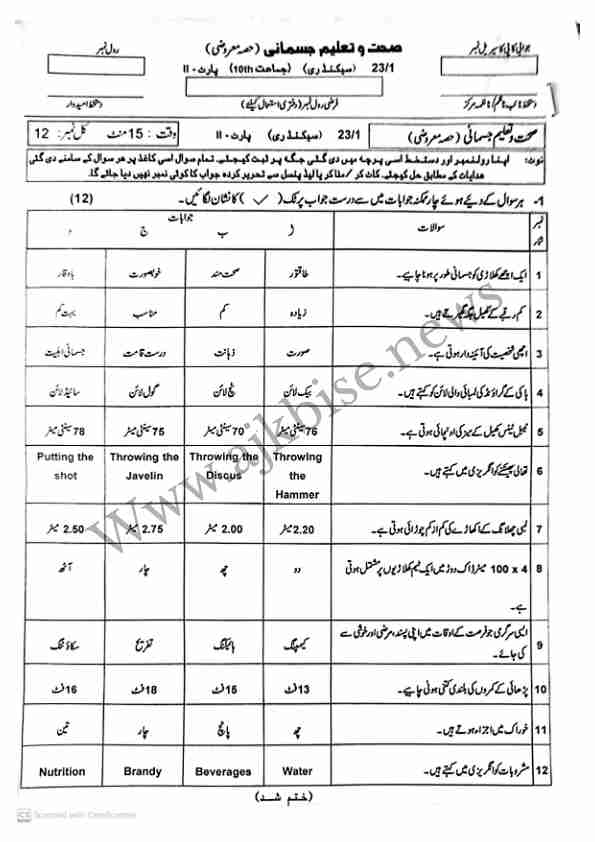 جوابی کاپی کا سیریل نمبر
صحت و تعلیم جسمانی (حصہ معروضی)
رول نمبر
23/1 (سیکنڈری) (جماعت 10th) پارٹ - II
فرضی رول نمبر (دفتری استعمال کیلئے)
دستخط امیدوار
صحت و تعلیم جسمانی (حصہ معروضی) 23/1 (سیکنڈری) پارٹ - II وقت : 15 منٹ کل نمبر : 12
نوٹ: اپنا رولنمبر اور دستخط اسی پرچہ میں دی گئی جگہ پر ثبت کیجئے۔ تمام سوال اسی کاغذ پر ھر سوال کے سامنے دی گئی
ھدایات کے مطابق حل کیجئے۔ کاٹ کر / مٹا کر یا لیڈ پنسل سے تحریر کردہ جواب کا کوئی نمبر نہیں دیا جائے گا۔
1- ہر سوال کے دیئے ہوئے چار ممکنہ جوابات میں سے درست جواب پر ٹِک ( ✓ ) کا نشان لگائیں۔ (12)
نمبر شمار سوالات جوابات
ا ب ج د
1 ایک اچھے کھلاڑی کو جسمانی طور پر ہونا چاہیے۔ طاقتور صحت مند خوبصورت باوقار
2 کم رقبے کے کھیل جگہ گھیرتے ہیں۔ زیادہ کم مناسب بہت کم
3 اچھی شخصیت کی آئینہ دار ہوتی ہے۔ صورت ذہانت درست قامت جسمانی اہلیت
4 ہاکی کے گراؤنڈ کی لمبائی والی لائن کو کہتے ہیں۔ بیک لائن پنچ لائن گول لائن سائیڈ لائن
5 ٹیبل ٹینس کھیل کے میز کی اونچائی ہوتی ہے۔ 76 سینٹی میٹر 70 سینٹی میٹر 75 سینٹی میٹر 78 سینٹی میٹر
6 تھالی پھینکنے کو انگریزی میں کہتے ہیں۔ Throwing the Hammer Throwing the Discus Throwing the Javelin Putting the shot
7 لمبی چھلانگ کے اکھاڑے کی کم از کم چوڑائی ہوتی ہے۔ 2.20 میٹر 2.00 میٹر 2.75 میٹر 2.50 میٹر
8 4 x 100 میٹر ڈاک دوڑ میں ایک ٹیم کھلاڑیوں پر مشتمل ہوتی ہے۔ دو چھ چار آٹھ
9 ایسی سرگرمی جو فرصت کے اوقات میں اپنی پسند، مرضی اور خوشی سے کی جائے۔ کیمپنگ ہائیکنگ تفریح سکاؤٹنگ
10 پڑھائی کے کمروں کی بلندی کتنی ہونی چاہیے۔ 13 فٹ 15 فٹ 18 فٹ 16 فٹ
11 خوراک میں اجزاء ہوتے ہیں۔ پانچ چھ چار تین
12 مشروبات کو انگریزی میں کہتے ہیں۔ Water Beverages Brandy Nutrition
(ختم شد)
www.ajkbise.news
Scanned with CamScanner